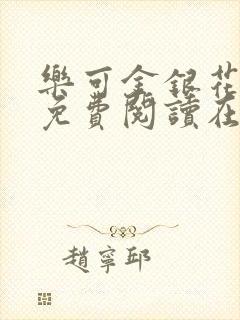 樂可金銀花
免費閱讀在
趙寧邱